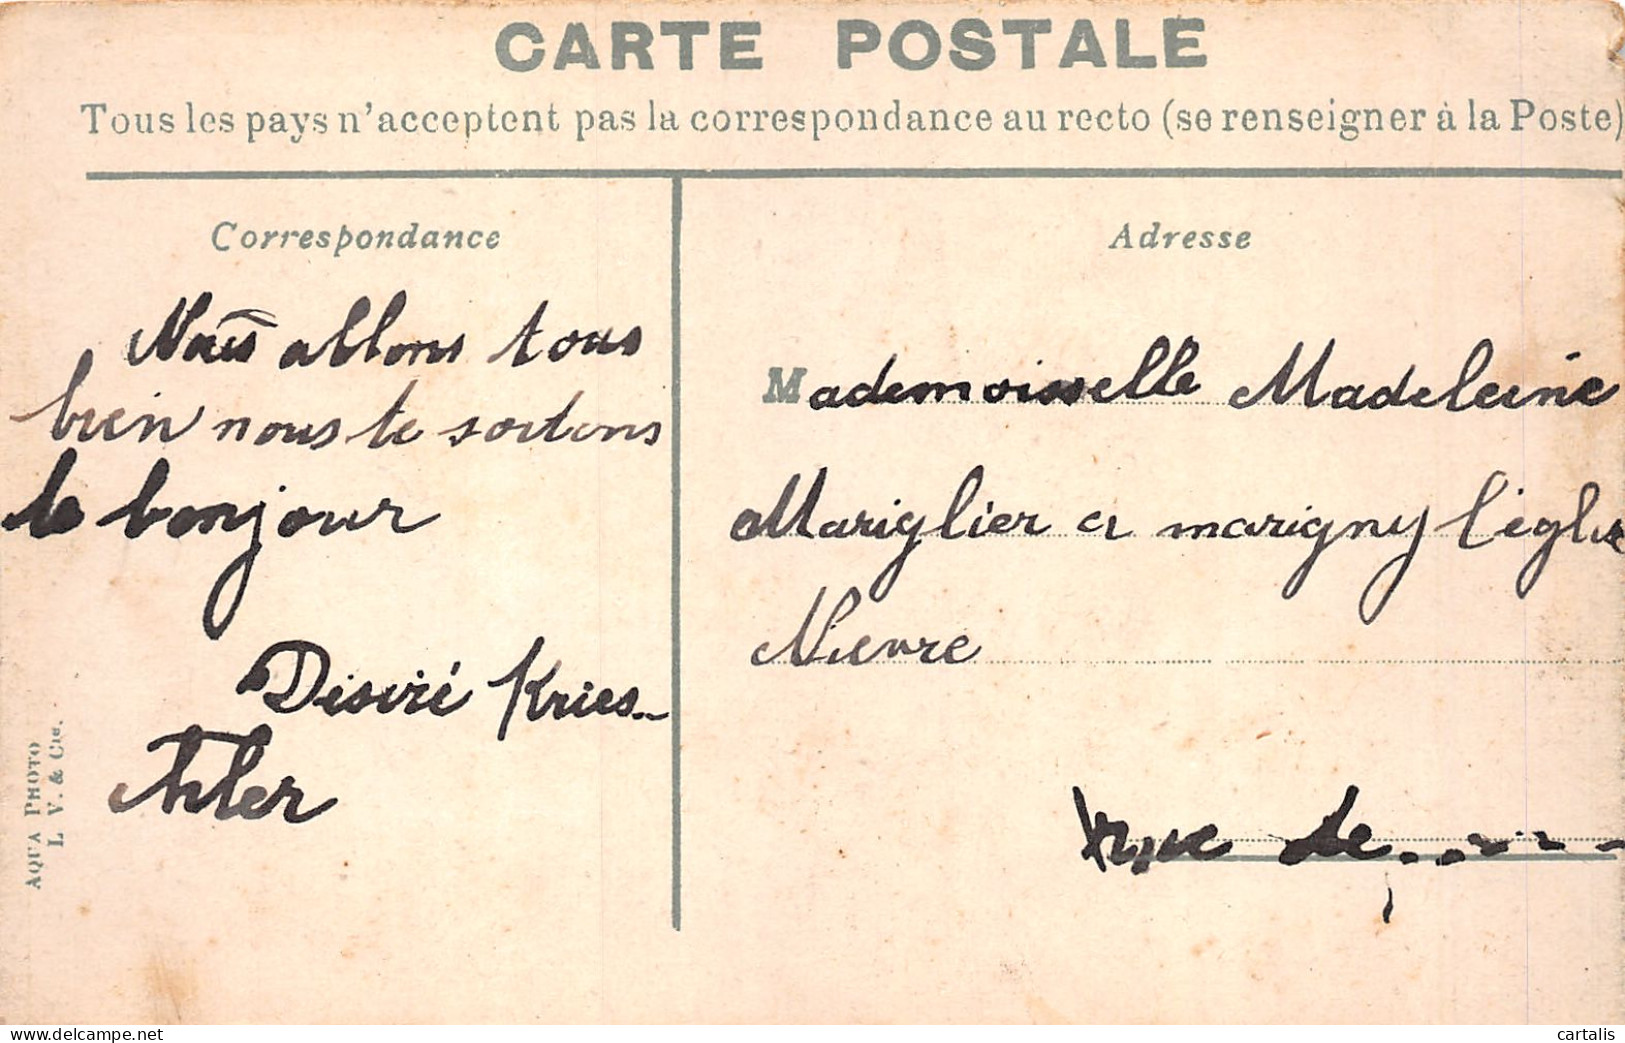 CARTE POSTALE
Tous les pays n'acceptent pas la correspondance au recto (se renseigner à la Poste)
Correspondance
Nous allons tous
bien nous te soitons
le bonjour
Desiré Kries-
Adresse
Mademoisselle Madeleine
Mariglier a marigny l'eglise
Nievre
rue de
AQUA PHOTO
L. V. & Cie.
cartalis